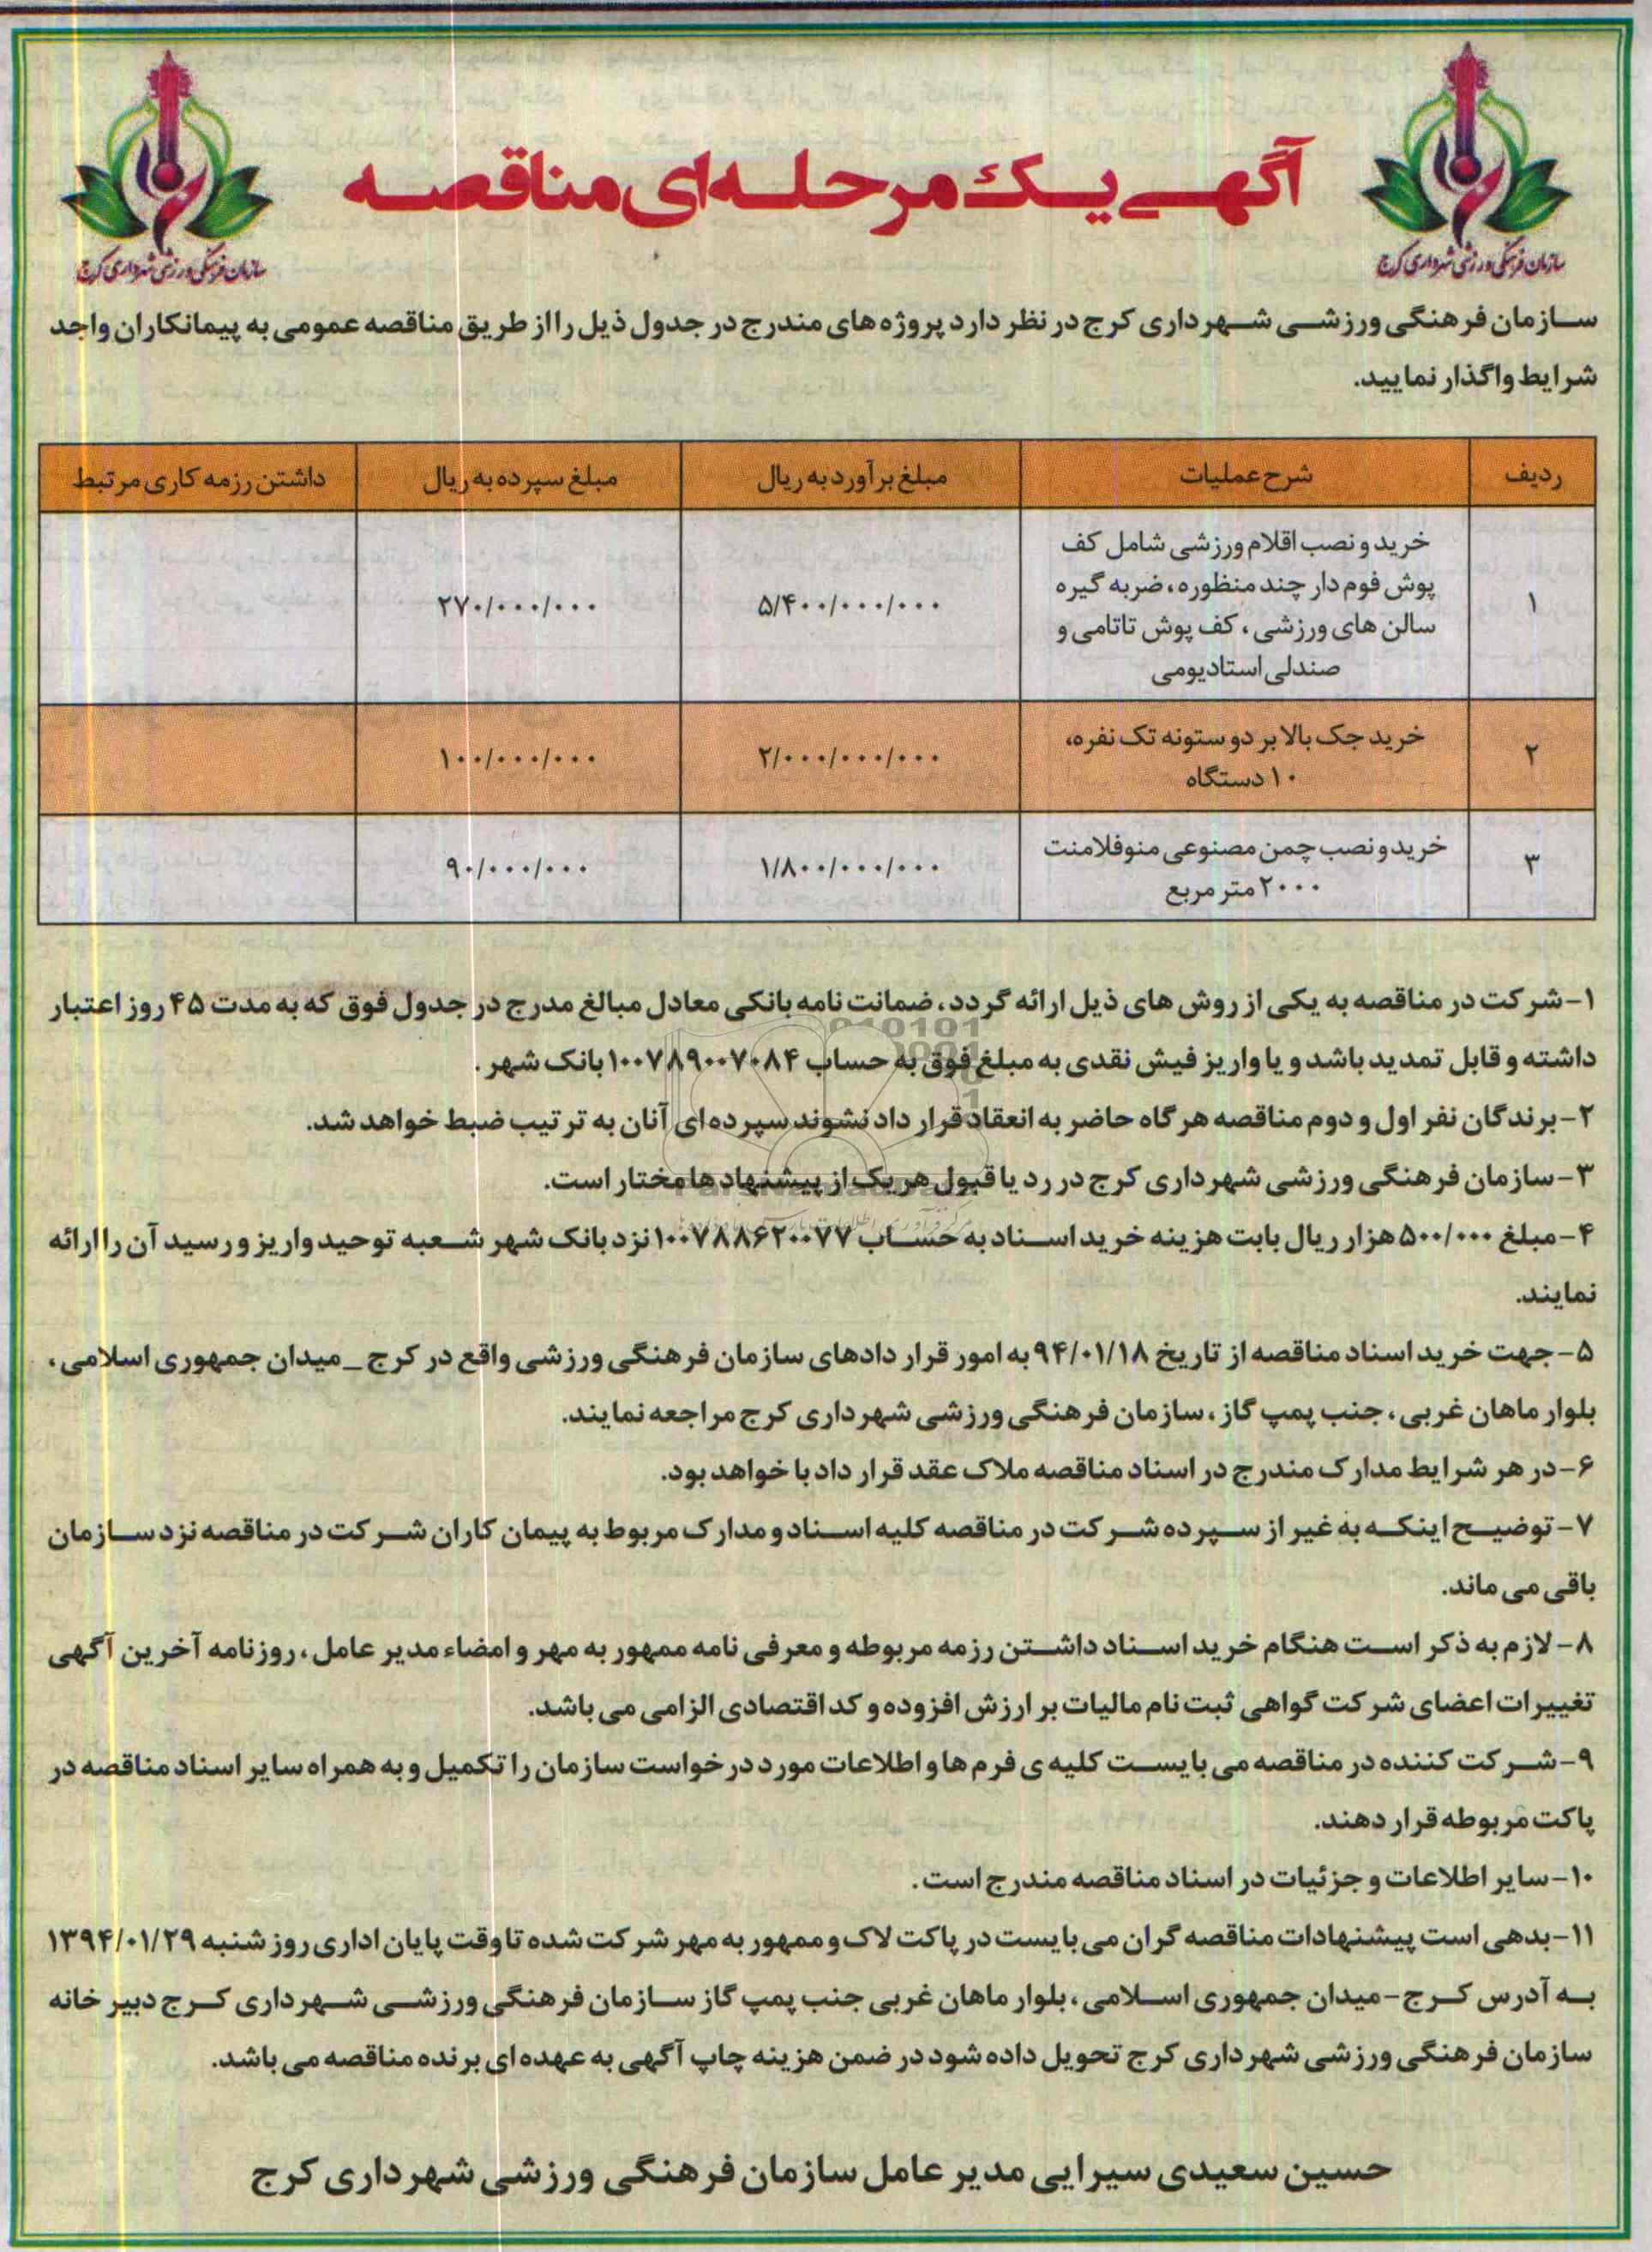 آگهی یک مرحله ای مناقصه
سازمان فرهنگی ورزشی شهرداری کرج
سازمان فرهنگی ورزشی شهرداری کرج
سازمان فرهنگی ورزشی شهرداری کرج در نظر دارد پروژه های مندرج در جدول ذیل را از طریق مناقصه عمومی به پیمانکاران واجد
شرایط واگذار نمایید.
ردیف شرح عملیات مبلغ برآورد به ریال مبلغ سپرده به ریال داشتن رزمه کاری مرتبط
خرید و نصب اقلام ورزشی شامل کف
پوش فوم دار چند منظوره، ضربه گیره
۱ ۵/۴۰۰/۰۰۰/۰۰۰ ۲۷۰/۰۰۰/۰۰۰
سالن های ورزشی، کف پوش تاتامی و
صندلی استادیومی
خرید جک بالا بر دو ستونه تک نفره،
۲ ۲/۰۰۰/۰۰۰/۰۰۰ ۱۰۰/۰۰۰/۰۰۰
۱۰ دستگاه
خرید و نصب چمن مصنوعی منوفلامنت
۳ ۱/۸۰۰/۰۰۰/۰۰۰ ۹۰/۰۰۰/۰۰۰
۲۰۰۰ متر مربع
۱- شرکت در مناقصه به یکی از روش های ذیل ارائه گردد، ضمانت نامه بانکی معادل مبالغ مدرج در جدول فوق که به مدت ۴۵ روز اعتبار
داشته و قابل تمدید باشد و یا واریز فیش نقدی به مبلغ فوق به حساب ۱۰۰۷۸۹۰۰۷۰۸۴ بانک شهر .
۲- برندگان نفر اول و دوم مناقصه هر گاه حاضر به انعقاد قرار داد نشوند سپرده ای آنان به ترتیب ضبط خواهد شد.
۳- سازمان فرهنگی ورزشی شهرداری کرج در رد یا قبول هر یک از پیشنهادها مختار است.
۴- مبلغ ۵۰۰/۰۰۰ هزار ریال بابت هزینه خرید اسناد به حساب ۱۰۰۷۸۸۶۲۰۰۷۷ نزد بانک شهر شعبه توحید واریز و رسید آن را ارائه
نمایند.
۵- جهت خرید اسناد مناقصه از تاریخ ۹۴/۰۱/۱۸ به امور قرار دادهای سازمان فرهنگی ورزشی واقع در کرج _ میدان جمهوری اسلامی ،
بلوار ماهان غربی، جنب پمپ گاز، سازمان فرهنگی ورزشی شهرداری کرج مراجعه نمایند.
۶- در هر شرایط مدارک مندرج در اسناد مناقصه ملاک عقد قرار داد با خواهد بود.
۷- توضیح اینکه به غیر از سپرده شرکت در مناقصه کلیه اسناد و مدارک مربوط به پیمان کاران شرکت در مناقصه نزد سازمان
باقی می ماند.
۸- لازم به ذکر است هنگام خرید اسناد داشتن رزمه مربوطه و معرفی نامه ممهور به مهر و امضاء مدیر عامل، روزنامه آخرین آگهی
تغییرات اعضای شرکت گواهی ثبت نام مالیات بر ارزش افزوده و کد اقتصادی الزامی می باشد.
۹- شرکت کننده در مناقصه می بایست کلیه ی فرم ها و اطلاعات مورد درخواست سازمان را تکمیل و به همراه سایر اسناد مناقصه در
پاکت مربوطه قرار دهند.
۱۰- سایر اطلاعات و جزئیات در اسناد مناقصه مندرج است .
۱۱- بدهی است پیشنهادات مناقصه گران می بایست در پاکت لاک و ممهور به مهر شرکت شده تا وقت پایان اداری روز شنبه ۱۳۹۴/۰۱/۲۹
به آدرس کرج - میدان جمهوری اسلامی ، بلوار ماهان غربی جنب پمپ گاز سازمان فرهنگی ورزشی شهرداری کرج دبیر خانه
سازمان فرهنگی ورزشی شهرداری کرج تحویل داده شود در ضمن هزینه چاپ آگهی به عهده ای برنده مناقصه می باشد.
حسین سعیدی سیرایی مدیر عامل سازمان فرهنگی ورزشی شهرداری کرج